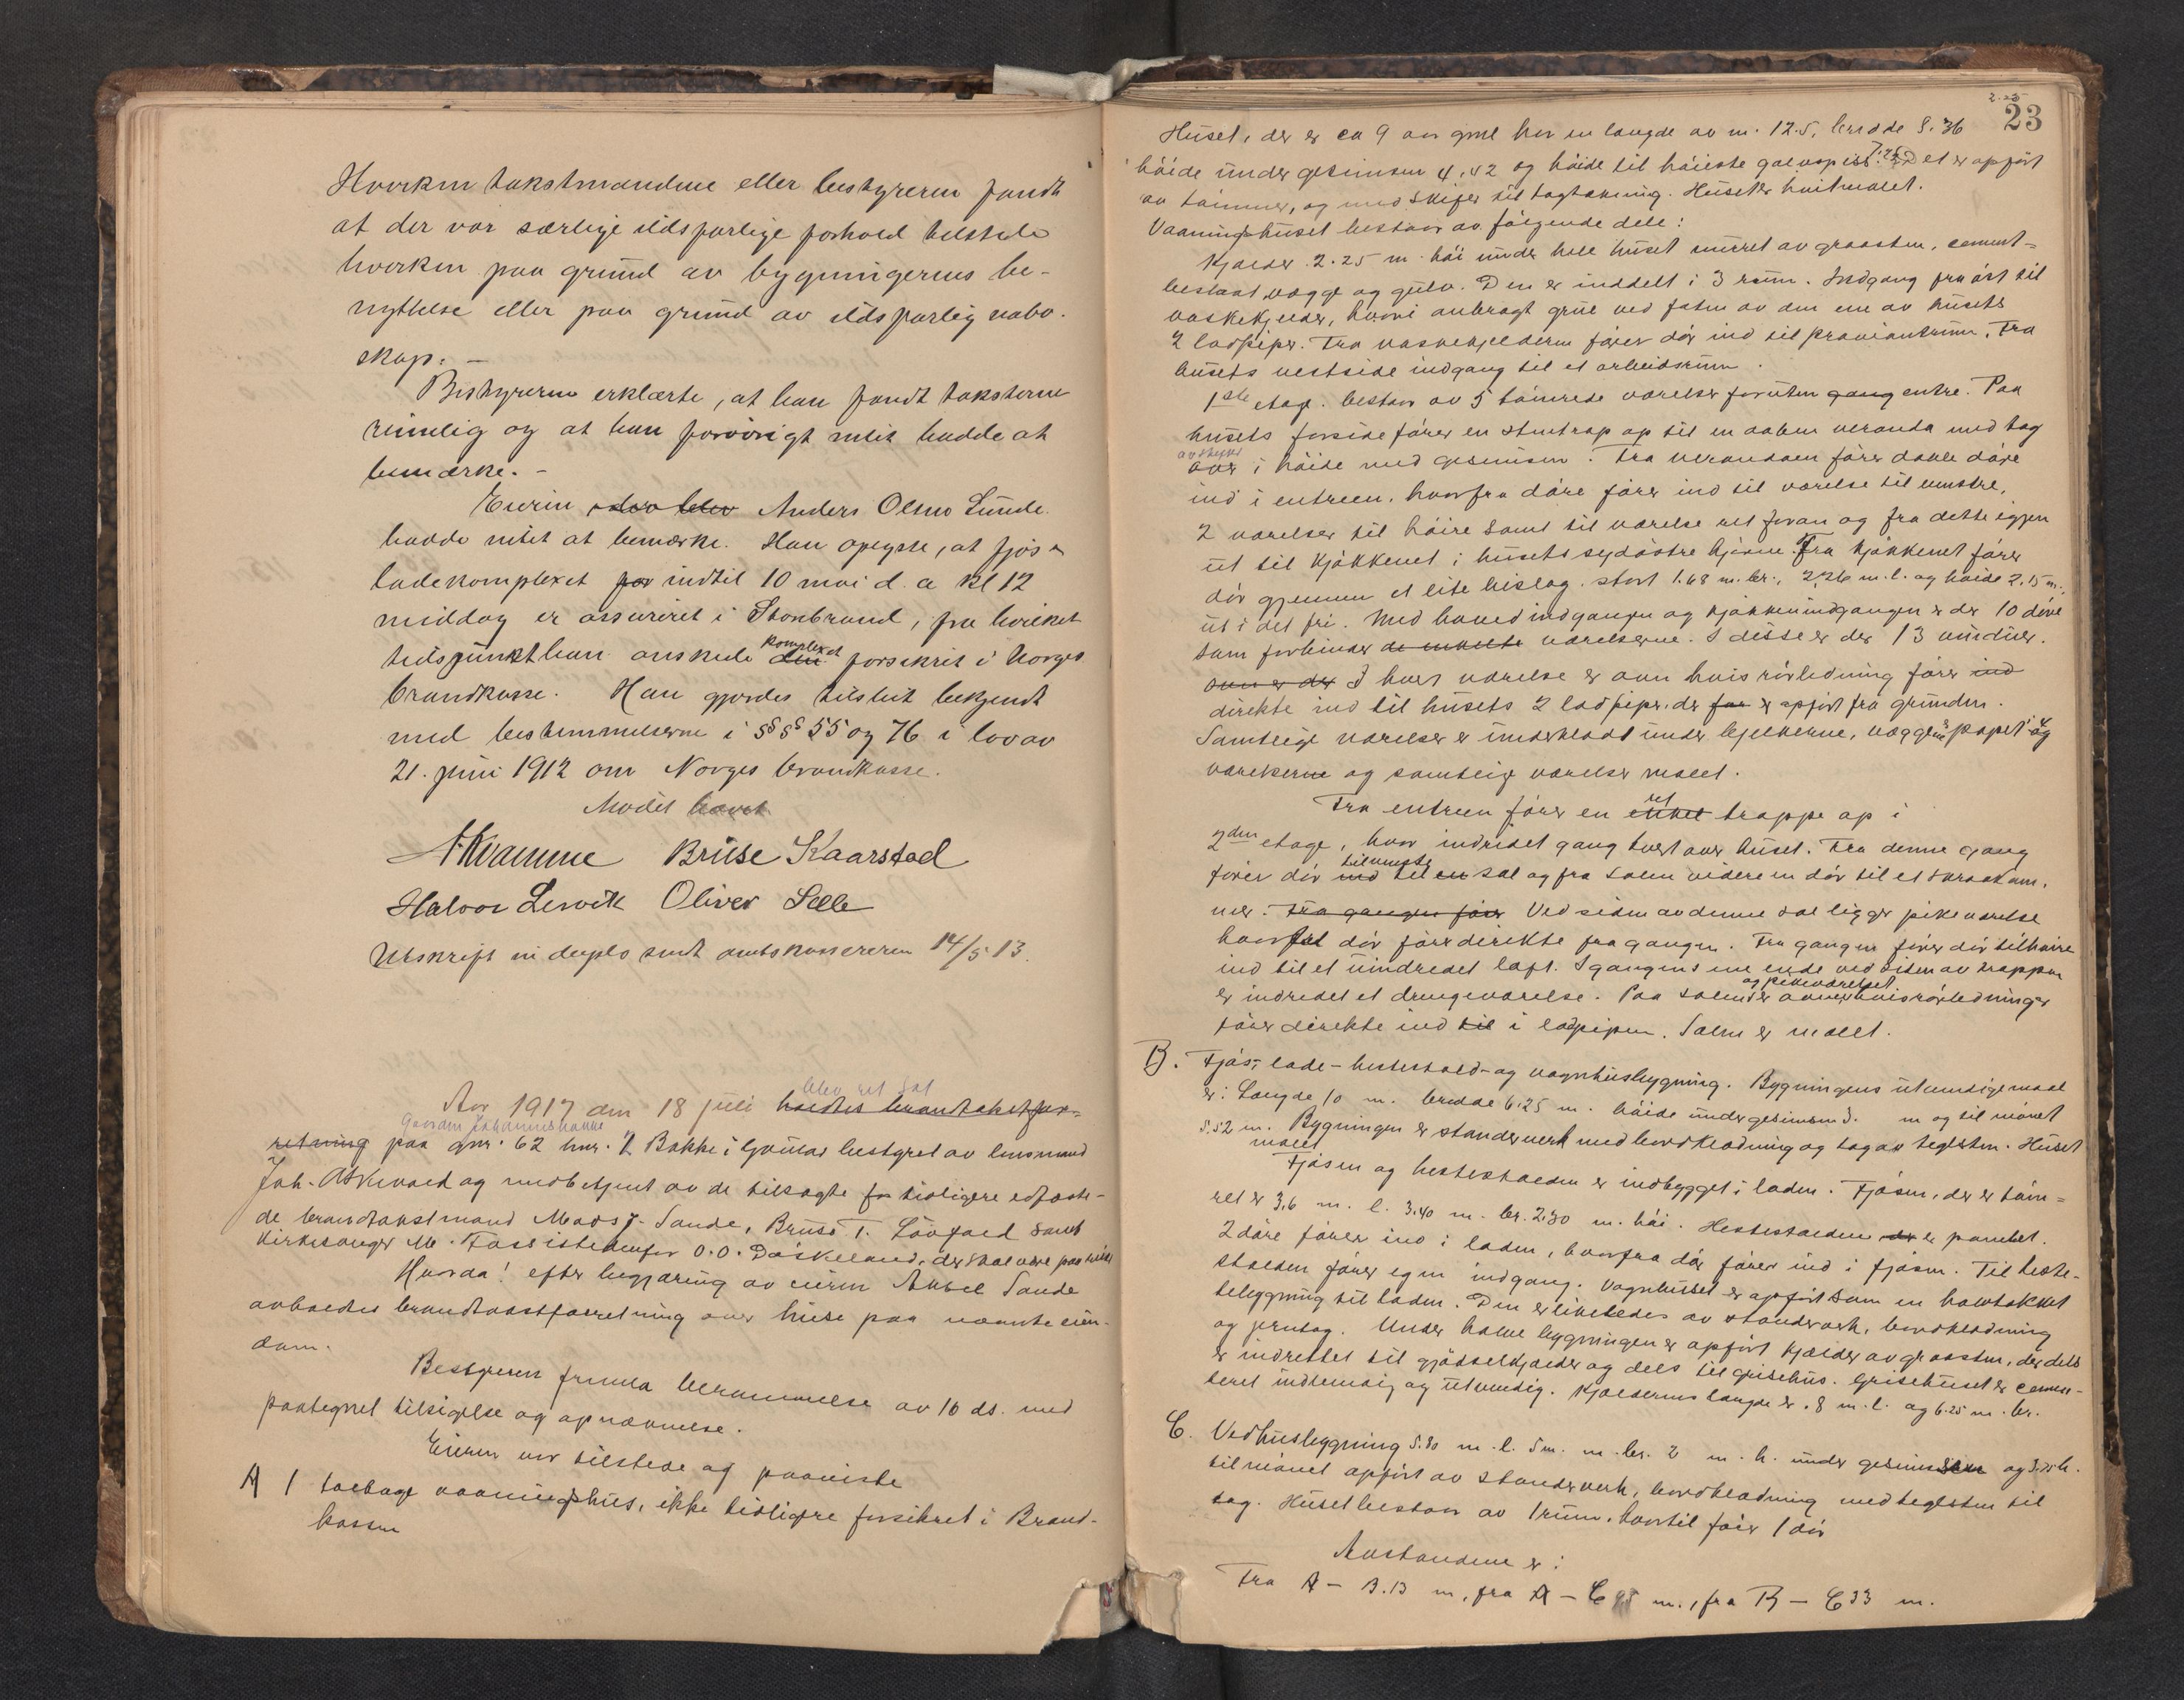 Hverken takstmændene eller bestyreren fandt
at der var særlige ildsfarlige forhold tilstede
hverken paa grund av bygningernes be-
nyttelse eller paa grund av ildsfarlig nabo-
skap. —
Bestyreren erklærte, at han fandt taksterne
rimelig og at han forøvrigt intet hadde at
bemærke. —
Eieren der blev Anders Olsen Sunde
hadde intet at bemærke. Han oplyste, at fjøs &
ladekomplexet for indtil 10 mai d. a kl 12
middag er assureret i Storebrand, fra hvilket
tidspunkt han ønskede den komplexet forsikret i Norges
brandkasse. Han gjordes tilslut bekjendt
med bestemmelserne i §§§ 55 og 76 i lov av
21. juni 1912 om Norges brandkasse.
Mødet hævet
A Kvamme Brüse Skaarstad
Halvor Lervik Oliver Selle
Utskrift in duplo sendt amtskassereren 14/5 13.
Aar 1917 den 18 juli holdtes brandtakstfor- blev ret sat
retning paa gaarden Johannesbakke gnr. 62 bnr. 2 Bakke i Gaular bestyret av lensmand
Joh. Askvold og medbetjent av de tilsagte for tidligere edfæste-
de brandtakstmænd Mads J. Sande, Bruse T. Løvfald samt
kirkesanger M. Fossi istedenfor O. O. Døskeland, der skal være paa
Hvorda! efter begjæring av eieren Aksel Sande
avholdes brandtakstforretning over huse paa nævnte eien-
dom.
Bestyreren fremla berammelse av 16 ds. med
paategnet tilsigelse og opnævnelse.
Eieren var tilstede og paaviste
A 1 toetages vaaningshus, ikke tidligere forsikret i Brand-
kassen
2.25
23
Huset, der er ca 9 aar gml har en længde av m. 12.5, bredde 8.36
høide under gesimsen 4,42 og høide til høieste gavlspiss 7.25. Det er opført
av tømmer, og med skifer til tagtækning. Huset er hvitmalet.
Vaaningshuset bestaar av følgende dele:
Kjælder 2.25 m. høi under hele huset murret av graasten, cement-
beslaat vægge og gulv. Den er inddelt i 3 rum. Indgang fra øst til
vaskekjelder, hvori anbragt grue ved foten av den ene av husets
2 ladpiper. Fra vaskekjelderen fører dør ind til proviantrum. Fra
husets vestside indgang til et arbeidsrum.
1ste etage. bestaar av 5 tømrede værelser foruten gang entre. Paa
husets forside fører en stentrap op til en aaben veranda med tag
over i høide med gesimsen. Fra verandaen fører doble døre
ind i entreen, hvorfra døre fører ind til værelse til venstre,
2 værelser til høire samt til værelse ret foran og fra dette igjen
ut til kjøkkenet i husets sydøstre hjørne. Fra kjøkkenet fører
dør gjennem et lite bislag, stort 1.68 m. br., 2,26 m. l. og høide 2.15 m.,
ut i det fri. Med hovedindgangen og kjøkkenindgangen er der 10 døre
som forbinder de enkelte værelserne. I disse er der 13 vinduer.
ovn er der I hver værelse er ovn hvis rørledning fører ind
direkte ind til husets 2 ladpiper, der for er opført fra grunden.
Samtlige værelser er underklædt under bjelkerne, væggene papet og
værelserne og samtlige værelser malet.
Fra entreen fører en enkel ret trappe op i
2den etage, hvor indredet gang tvert over huset. Fra denne gang
fører dør ind til en tilvenstre sal og fra salen videre en dør til et skraakam-
mer. Fra gangen fører Ved siden av denne sal ligger pikeværelse
hvortil dør fører direkte fra gangen. Fra gangen fører dør tilhøire
ind til et uindredet loft. I gangens ene ende ved siden av trappen
er indredet et drengeværelse. Paa salen og pikeværelset er ovner hvis rørledninger
fører direkte ind til i ladpipen. Salen er malet.
B. Fjøs-, lade- hestestald- og vognhusbygning. Bygningens utvendige maal
er: Længde 10 m. bredde 6.25 m. høide under gesimsen 3. m og til mønet
5.52 m. Bygningen er standerverk med bordklædning og tag av teglsten. Huset
malet
Fjøsen og hestestalden er indbygget i laden. Fjøsen, der er tøm-
ret er 3,6 m. l. 3.40 m. br. 2.30 m. høi. Hestestalden der er panelet.
2 døre fører ind i laden, hvorfra dør fører ind i fjøsen. Til heste-
stalden fører egen indgang. Vognhuset er opført som en halvtækket
tilbygning til laden. Den er likeledes av standerverk, bordklædning
og jerntag. Under halve bygningen er opført kjælder av graasten, der dels
er indrettet til gjødselkjælder og dels til grisehus. Grisehuset er cemen-
teret indvendig og utvendig. Kjælderens længde er 8 m. l. og 6.25 m. br.
C. Vedhusbygning 5.80 m. l. 5 m. m. br. 2 m. h. under gesimsen og 3.75 h.
til mønet opført av standerverk, bordklædning med teglsten til
tag. Huset bestaar av 1 rum, hvortil fører 1 dør
Avstandene er:
Fra A — B. 13 m, fra A — C m., fra B — C 33 m.